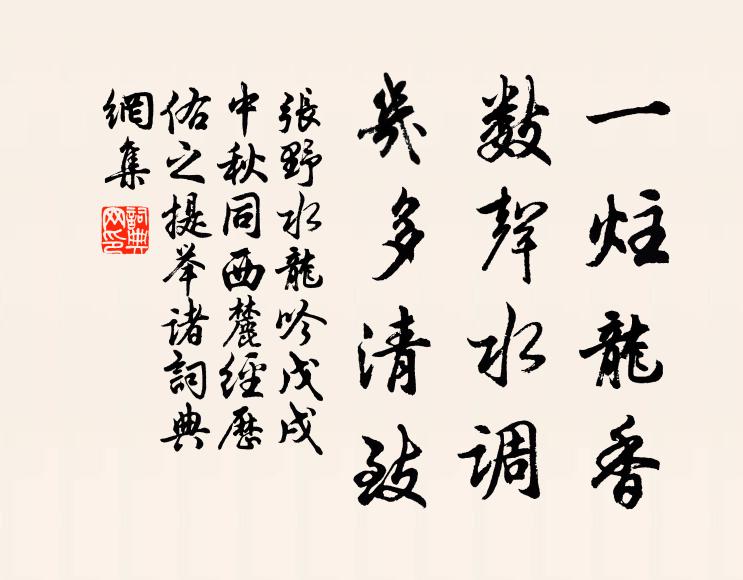 一炷龍香
數聲水調
幾多清致
張野水龍吟戊戌
中秋同西麓經歷
佑之提举諸詞典
網集
詞典
网印